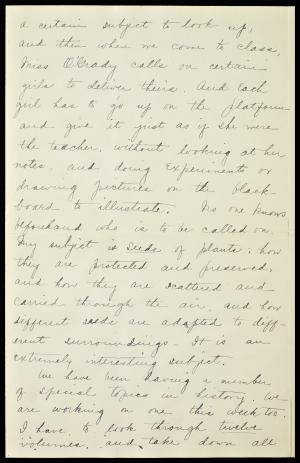 a certain subject to look up,
and then when we come to class,
Miss O'Grady calls on certain
girls to deliver theirs. And each
girl has to go up on the platform
and give it just as if she were
the teacher, without looking at her
notes, and doing experiments or
drawing pictures on the black-
board to illustrate. No one knows
beforehand who is to be called on.
My subject is seeds of plants; how
they are protected and preserved,
and how they are scattered and
carried through the air, and how
different seeds are adapted to diff-
erent surroundings - It is an
extremely interesting subject.
We have been having a number
of special topics in history. We
are working on one this week too.
I have to look through twelve
volumes, and take down all